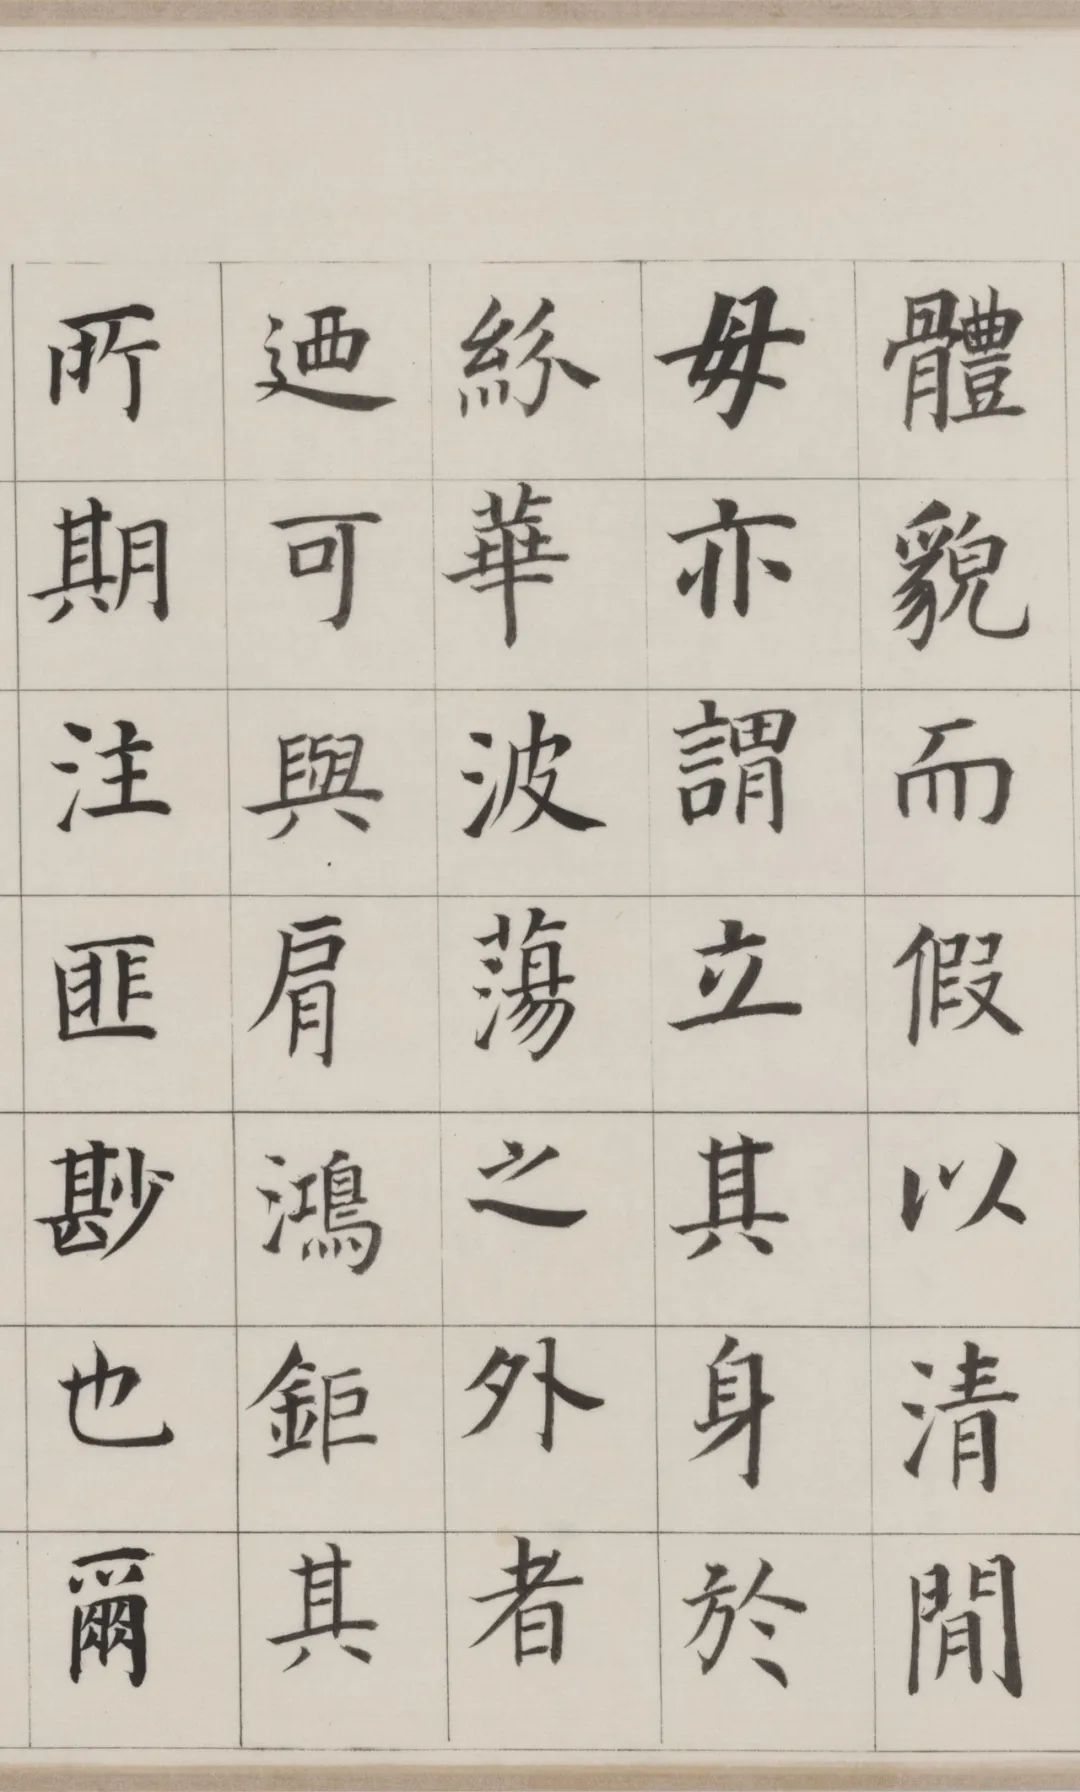 體貌而假以清閒
毋亦謂立其身於
紛華波蕩之外者
迺可與肩鴻鉅其
所期注匪尠也爾